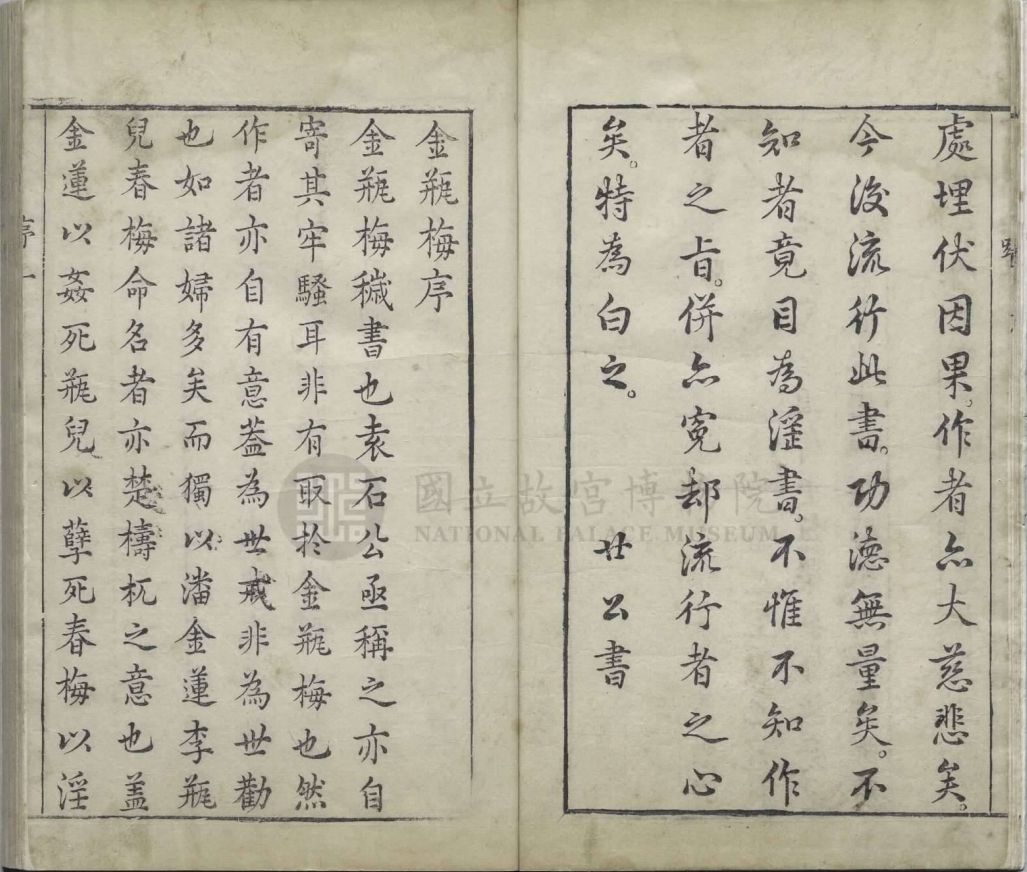 處埋伏因果。作者亦大慈悲矣。
今後流行此書。功德無量矣。不
知者竟目為淫書。不惟不知作
者之旨。併亦冤却流行者之心
矣。特為白之。
廿公書
金瓶梅序
金瓶梅穢書也袁石公亟稱之亦自
寄其牢騷耳非有取於金瓶梅也然
作者亦自有意葢為世戒非為世勸
也如諸婦多矣而獨以潘金蓮李瓶
兒春梅命名者亦楚檮杌之意也盖
金蓮以姦死瓶兒以孽死春梅以淫
序 一
國立故宮博物院
NATIONAL PALACE MUSEUM